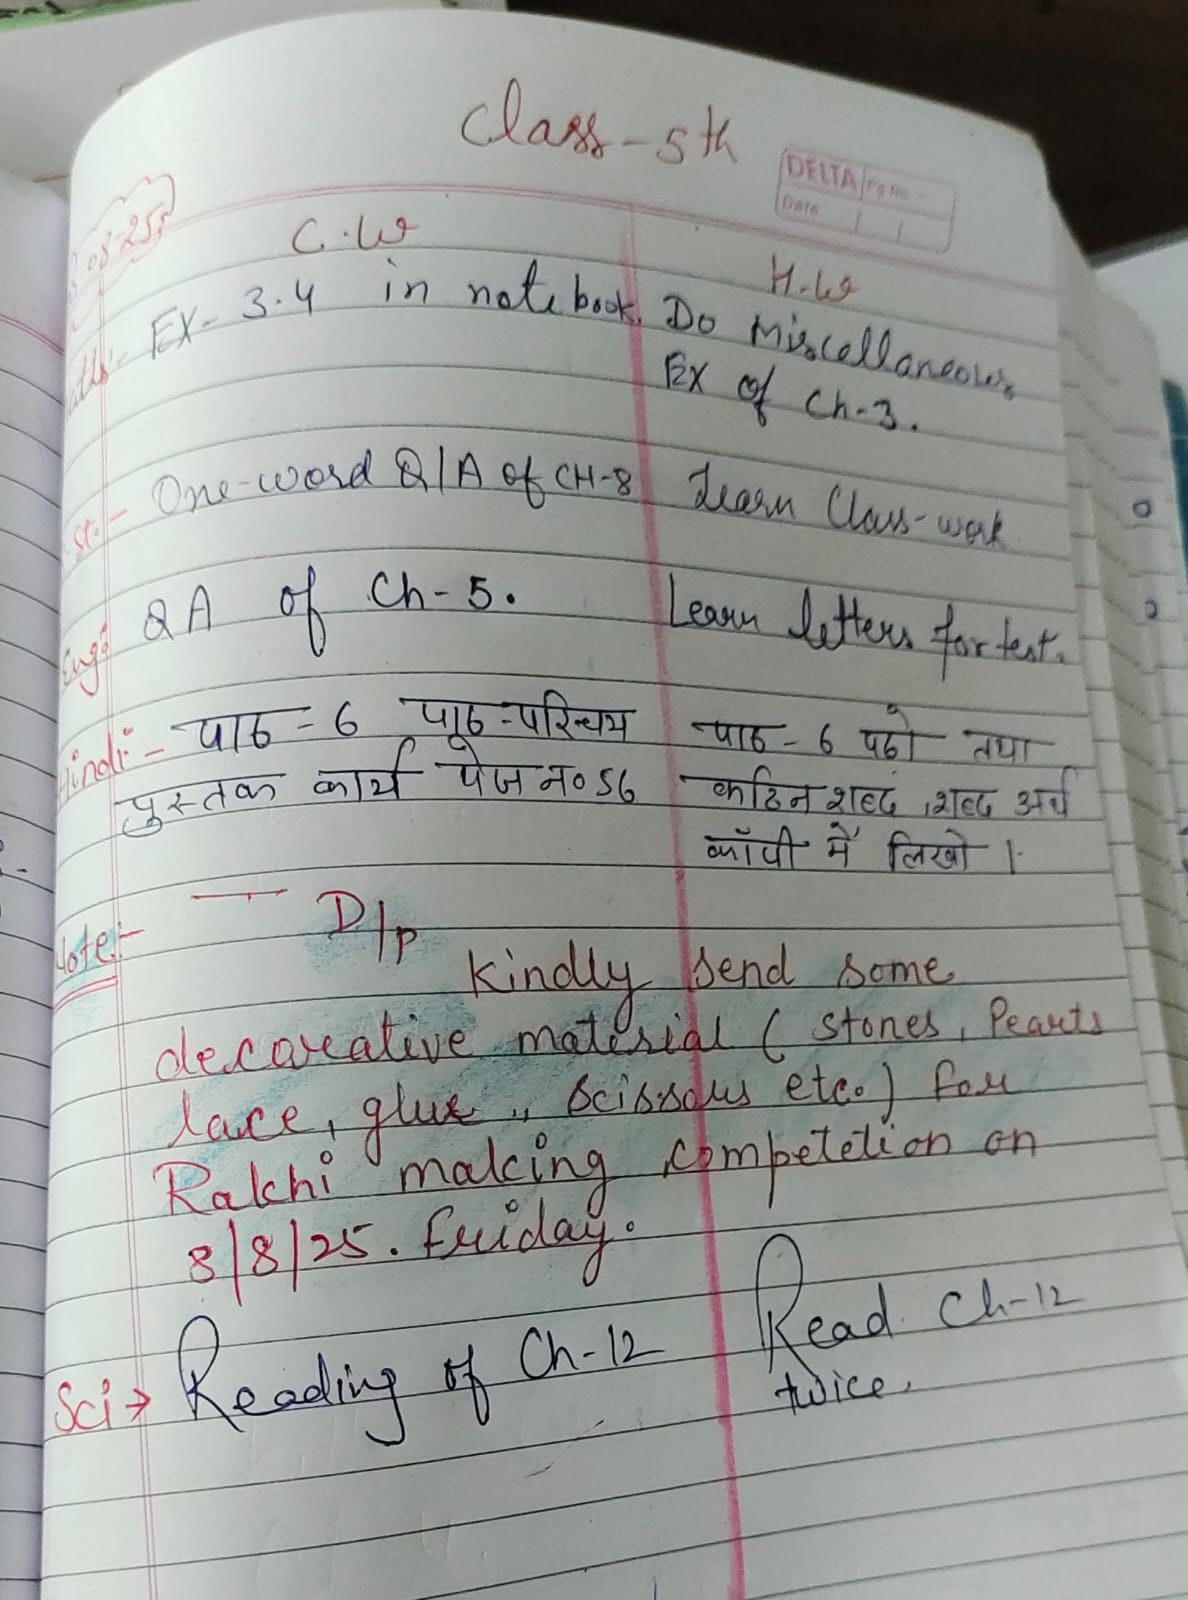 Class-5th
DELTA Pg No.
Date
C.W
H.W
EX-3.4 in notebook. Do Miscellaneous
Ex of Ch-3.
One-word Q/A of CH-8 Learn Class-work
St.-
QA of Ch-5. Learn letters for test.
Eng:
Hindi:- पाठ-6 पाठ-परिचय पाठ-6 पढो तथा
पुस्तक कार्य पेज न० 56 कठिन शब्द, शब्द अर्थ
कॉपी में लिखो ।
Note:- D/p
Kindly send some
decorative material ( stones, Pearls
lace, glue,, Scissors etc.) for
Rakhi making competetion on
8/8/25. Friday.
Sci→ Reading of Ch-12 Read Ch-12
twice.